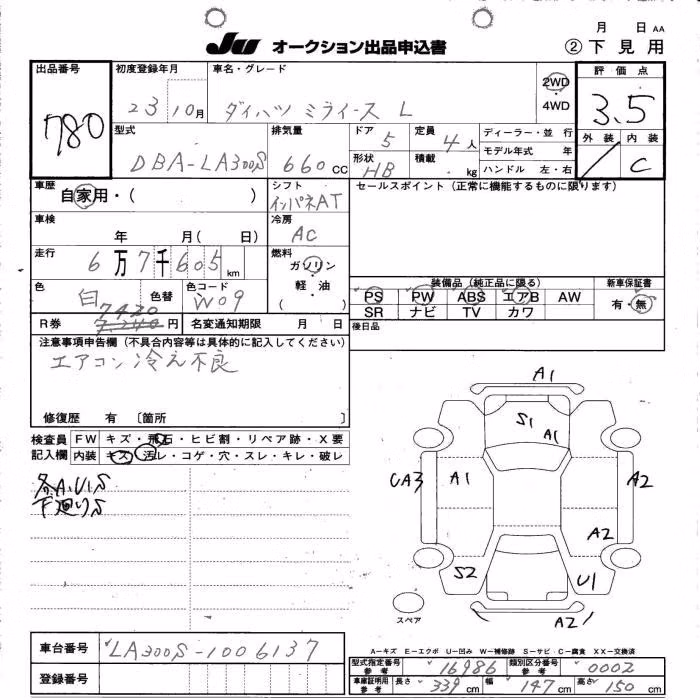 月 日 AA
JU オークション出品申込書 ② 下見用
出品番号 初度登録年月 車名・グレード 評価点
780 23 10月 ダイハツ ミライース L 2WD ・4WD 3.5
型式 排気量 ドア 定員 ディーラー・並行 外装 内装
DBA-LA300S 660cc 5 4人 モデル年式 年 / C
形状 積載 ハンドル 左・右
HB kg
車歴 自家用・( ) シフト インパネAT セールスポイント(正常に機能するものに限ります)
車検 年 月( 日) 冷房 AC
走行 6万7千605km 燃料 ガソリン
軽油
( )
色 白 色替 色コード W09 装備品(純正品に限る) 新車保証書
PS PW ABS エアB AW 有・無
SR ナビ TV カワ
R券 7420 7240円 名変通知期限 月 日 後日品
注意事項申告欄(不具合内容等は具体的に記入してください)
エアコン冷え不良
修復歴 有 〔箇所 〕
検査員 FW キズ・飛石・ヒビ割・リペア跡・X要
記入欄 内装 キズ・汚レ・コゲ・穴・スレ・キレ・破レ
各A,U,S
下廻りS
A1
S1
A1
UA3 A1 A2
A2
S2 U1
A2
スペア
A-キズ E-エクボ U-凹み W-補修跡 S-サビ C-腐食 XX-交換済
車台番号 LA300S-1006137
型式指定番号 参考 16986 類別区分番号 参考 0002
登録番号
車庫証明用 参考 長さ 339cm 幅 147cm 高さ 150cm